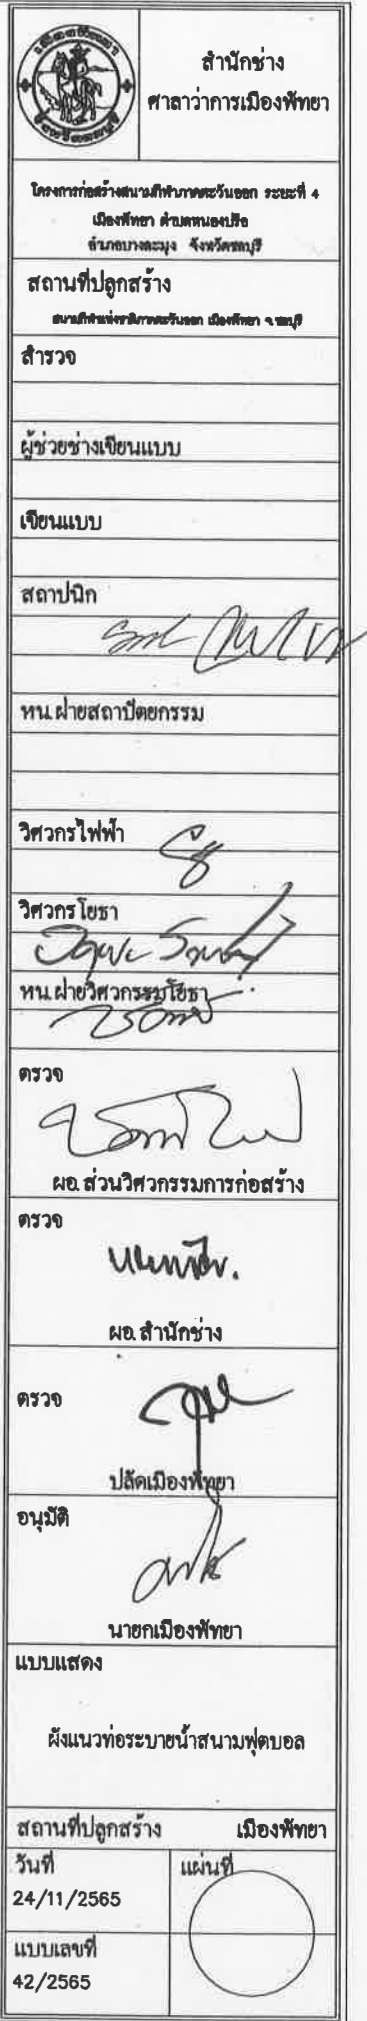 สำนักช่าง
ศาลาว่าการเมืองพัทยา
โครงการก่อสร้างสนามกีฬาภาคตะวันออก ระยะที่ 4
เมืองพัทยา ตำบลหนองปรือ
อำเภอบางละมุง จังหวัดชลบุรี
สถานที่ปลูกสร้าง
สนามกีฬาแห่งชาติภาคตะวันออก เมืองพัทยา จ.ชลบุรี
สำรวจ
ผู้ช่วยช่างเขียนแบบ
เขียนแบบ
สถาปนิก
หน.ฝ่ายสถาปัตยกรรม
วิศวกรไฟฟ้า
วิศวกรโยธา
หน.ฝ่ายวิศวกรรมโยธา
ตรวจ
ผอ.ส่วนวิศวกรรมการก่อสร้าง
ตรวจ
ผอ.สำนักช่าง
ตรวจ
ปลัดเมืองพัทยา
อนุมัติ
นายกเมืองพัทยา
แบบแสดง
ผังแนวท่อระบายน้ำสนามฟุตบอล
สถานที่ปลูกสร้าง เมืองพัทยา
วันที่
24/11/2565
แผ่นที่
แบบเลขที่
42/2565